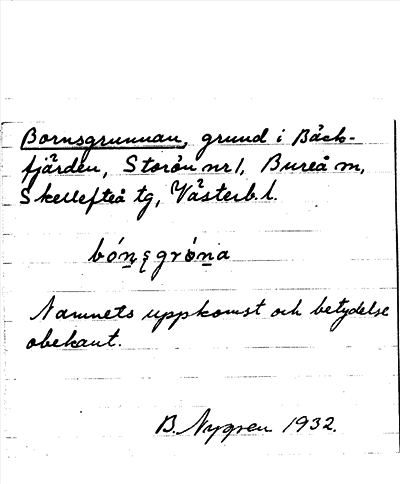 Bornsgrunnan, grund i Bäck-
fjärden, Storön nr 1, Bureå m,
Skellefteå tg, Västerb. l.
bón̠ȩgròn̠a
Namnets uppkomst och betydelse
obekant.
B. Nygren 1932.